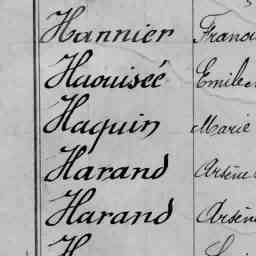 Hannier Franc
Haouiseé Emile
Haquin Marie
Harand Arsène
Harand Arsène